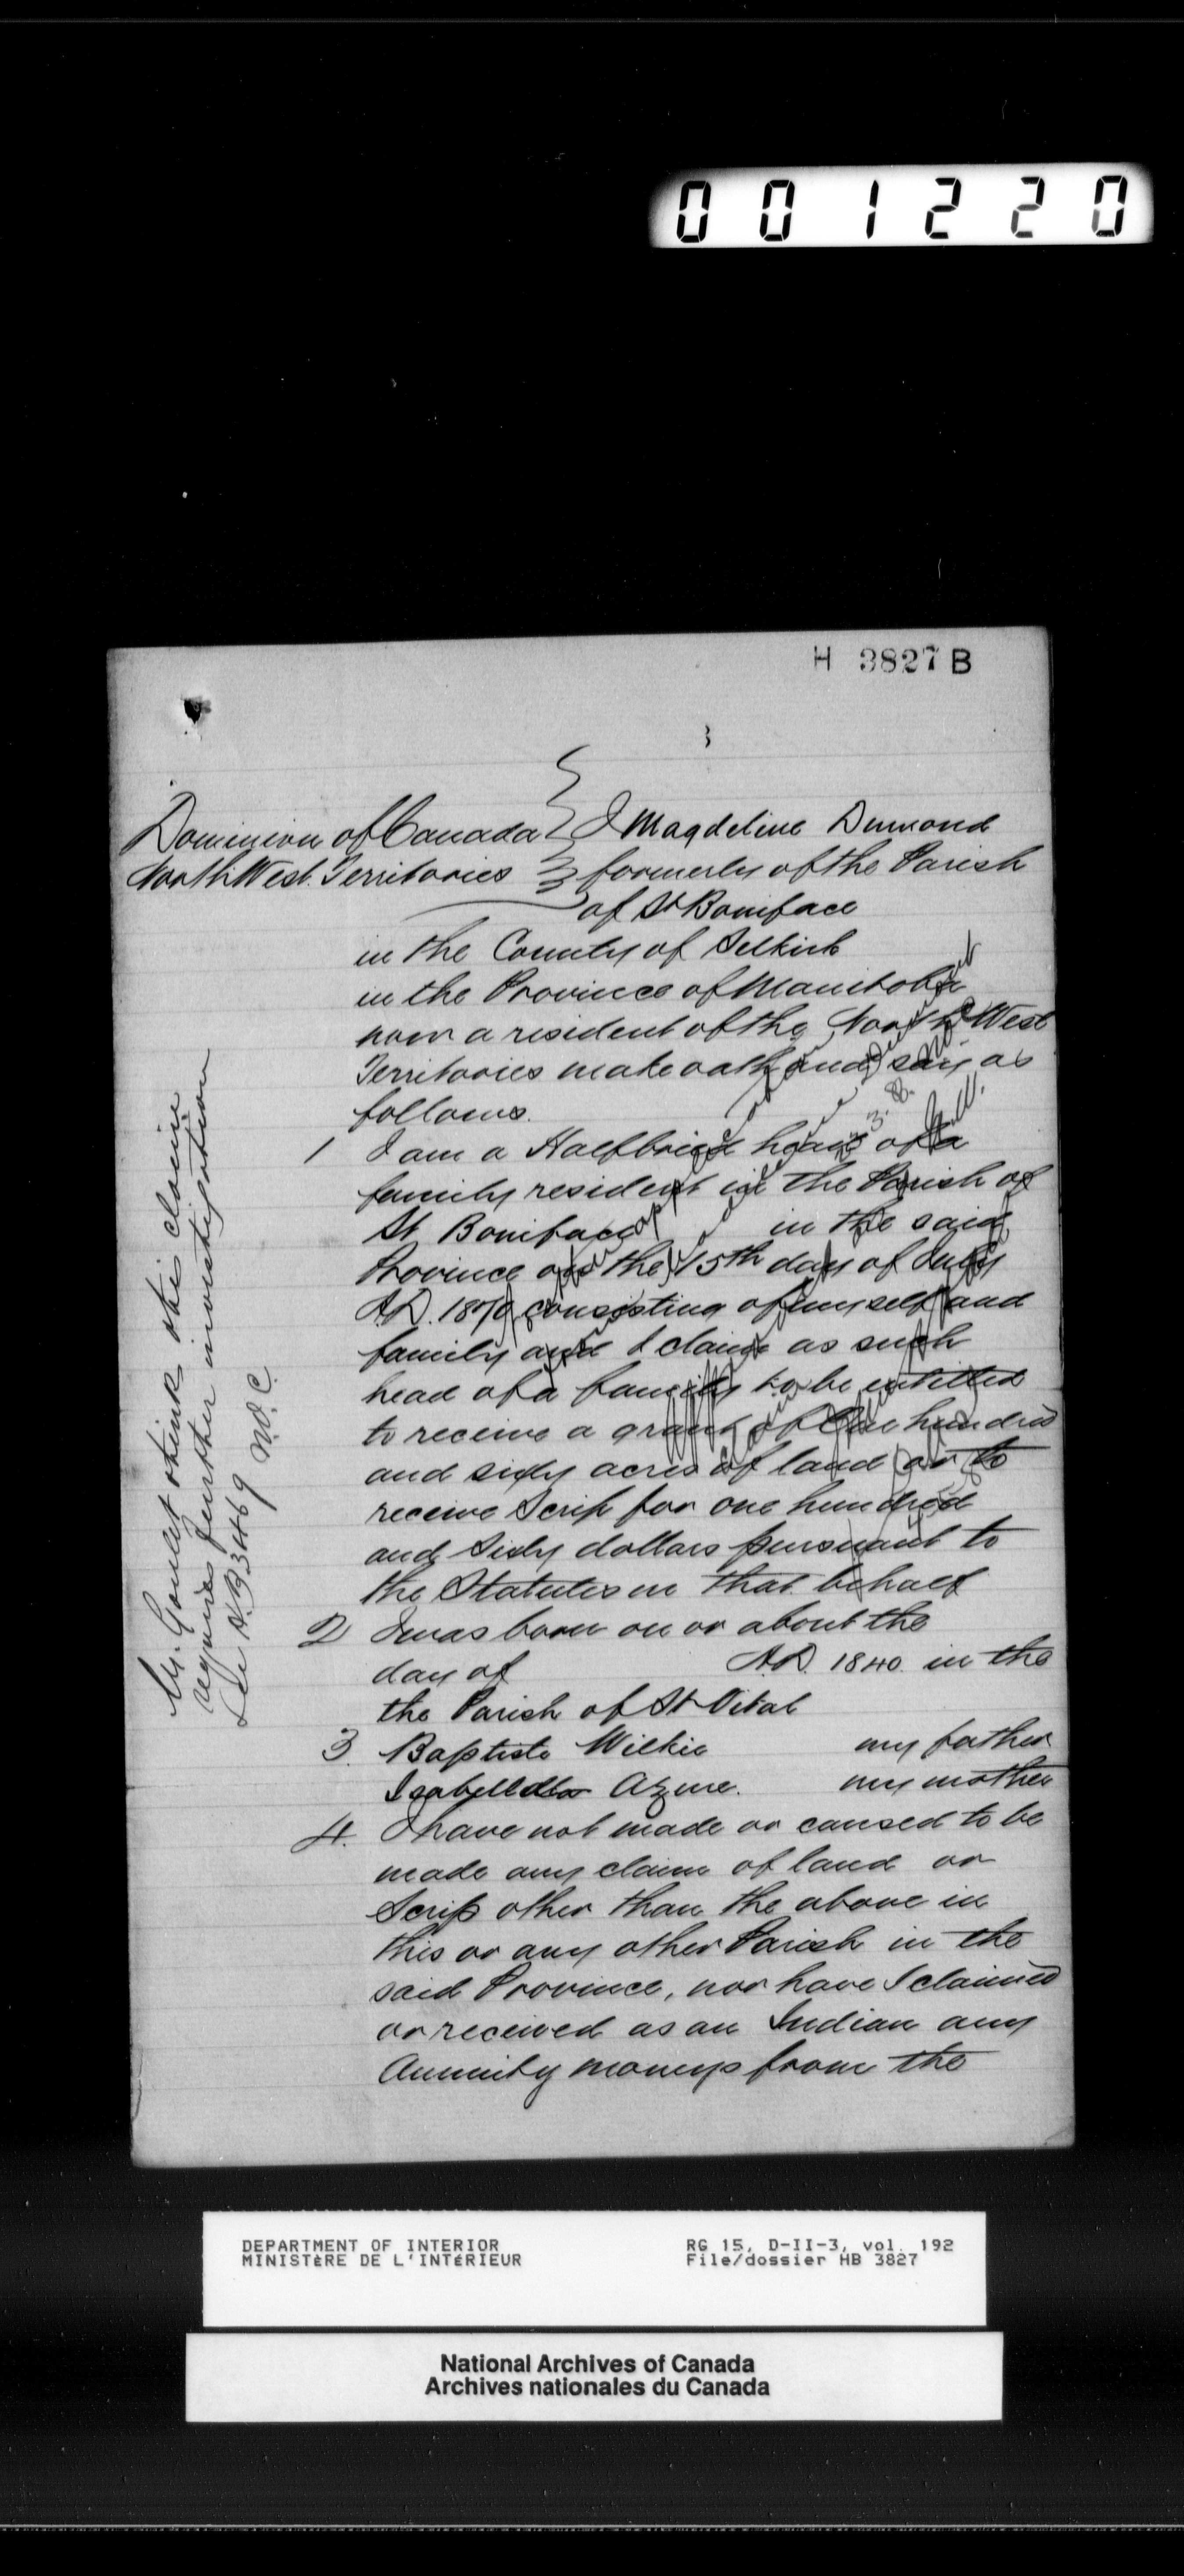 001220
H 3827 B
3
Dominion of Canada } I Magdeline Dumond
North West Territories } formerly of the Parish
of St Boniface
in the County of Selkirk
in the Province of Manitoba
now a resident of the North West
Territories make oath and say as
follows.
1 I am a Halfbreed head of a
family resident in the Parish of
St Boniface in the said
Province on the 15th day of July
A.D. 1870 consisting of myself and
family and I claim as such
head of a family to be entitled
to receive a grant of One hundred
and sixty acres of land or to
receive Scrip for one hundred
and Sixty dollars pursuant to
the Statutes in that behalf
2 I was born on or about the
day of A.D. 1840 in the
the Parish of St Vital
3. Baptiste Wilkie my father
Isabella Azure. my mother
4. I have not made or caused to be
made any claim of land or
Scrip other than the above in
this or any other Parish in the
said Province, nor have I claimed
or received as an Indian any
Annuity moneys from the
Mr. Goulet thinks this claim
requires further investigation
See N.B 3469 N.O.C.
DEPARTMENT OF INTERIOR
MINISTèRE DE L'INTéRIEUR
RG 15, D-II-3, vol. 192
File/dossier HB 3827
National Archives of Canada
Archives nationales du Canada